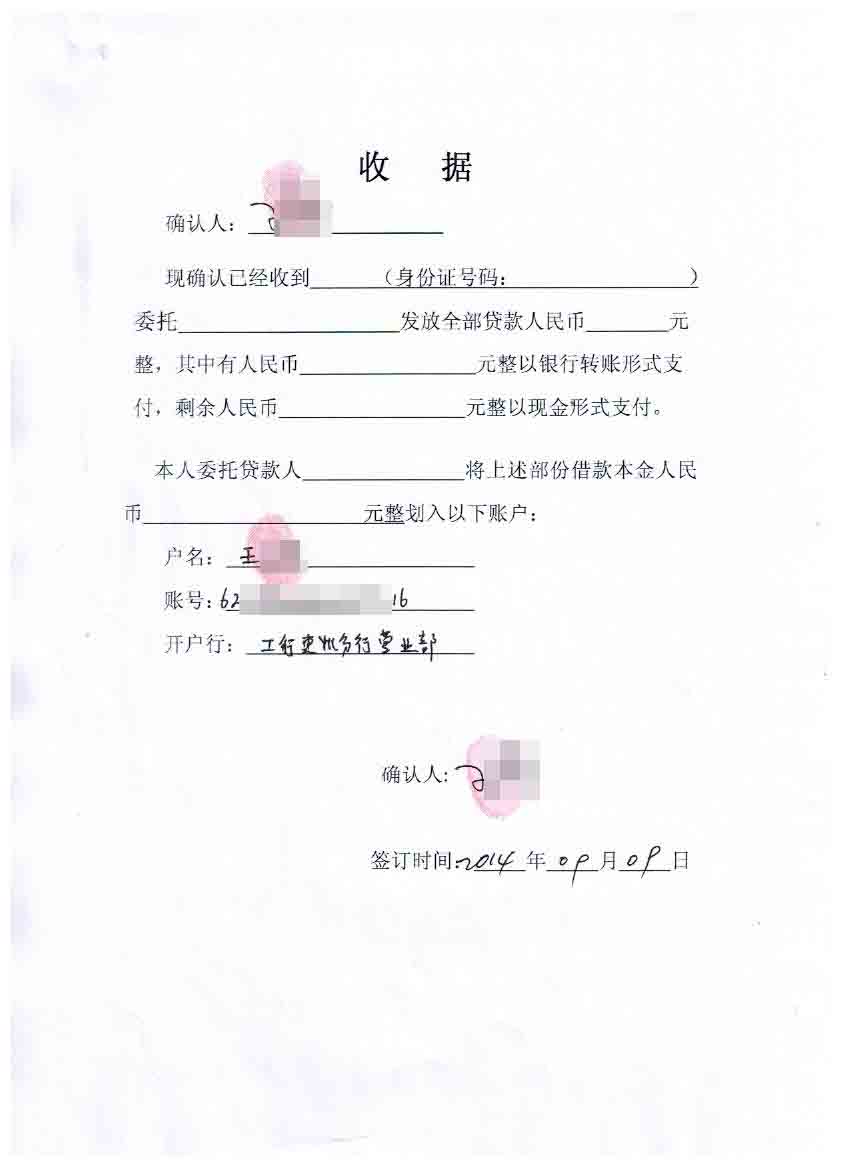 收 据
确认人：
现确认已经收到________（身份证号码：________）
委托________发放全部贷款人民币________元
整，其中有人民币________元整以银行转账形式支
付，剩余人民币________元整以现金形式支付。
本人委托贷款人________将上述部份借款本金人民
币________元整划入以下账户：
户名：王
账号：62 16
开户行：工行 分行营业部
确认人：
签订时间：2014 年 09 月 09 日